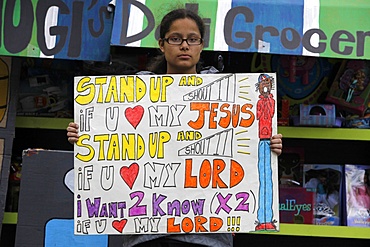 UGI'S Deli Grocer
STAND UP AND SHOUT
iF U ♥ MY JESUS
STAND UP AND SHOUT
iF U ♥ MY LORD
i WANT 2 KNOW (X2)
iF U ♥ MY LORD!!!
Eyes